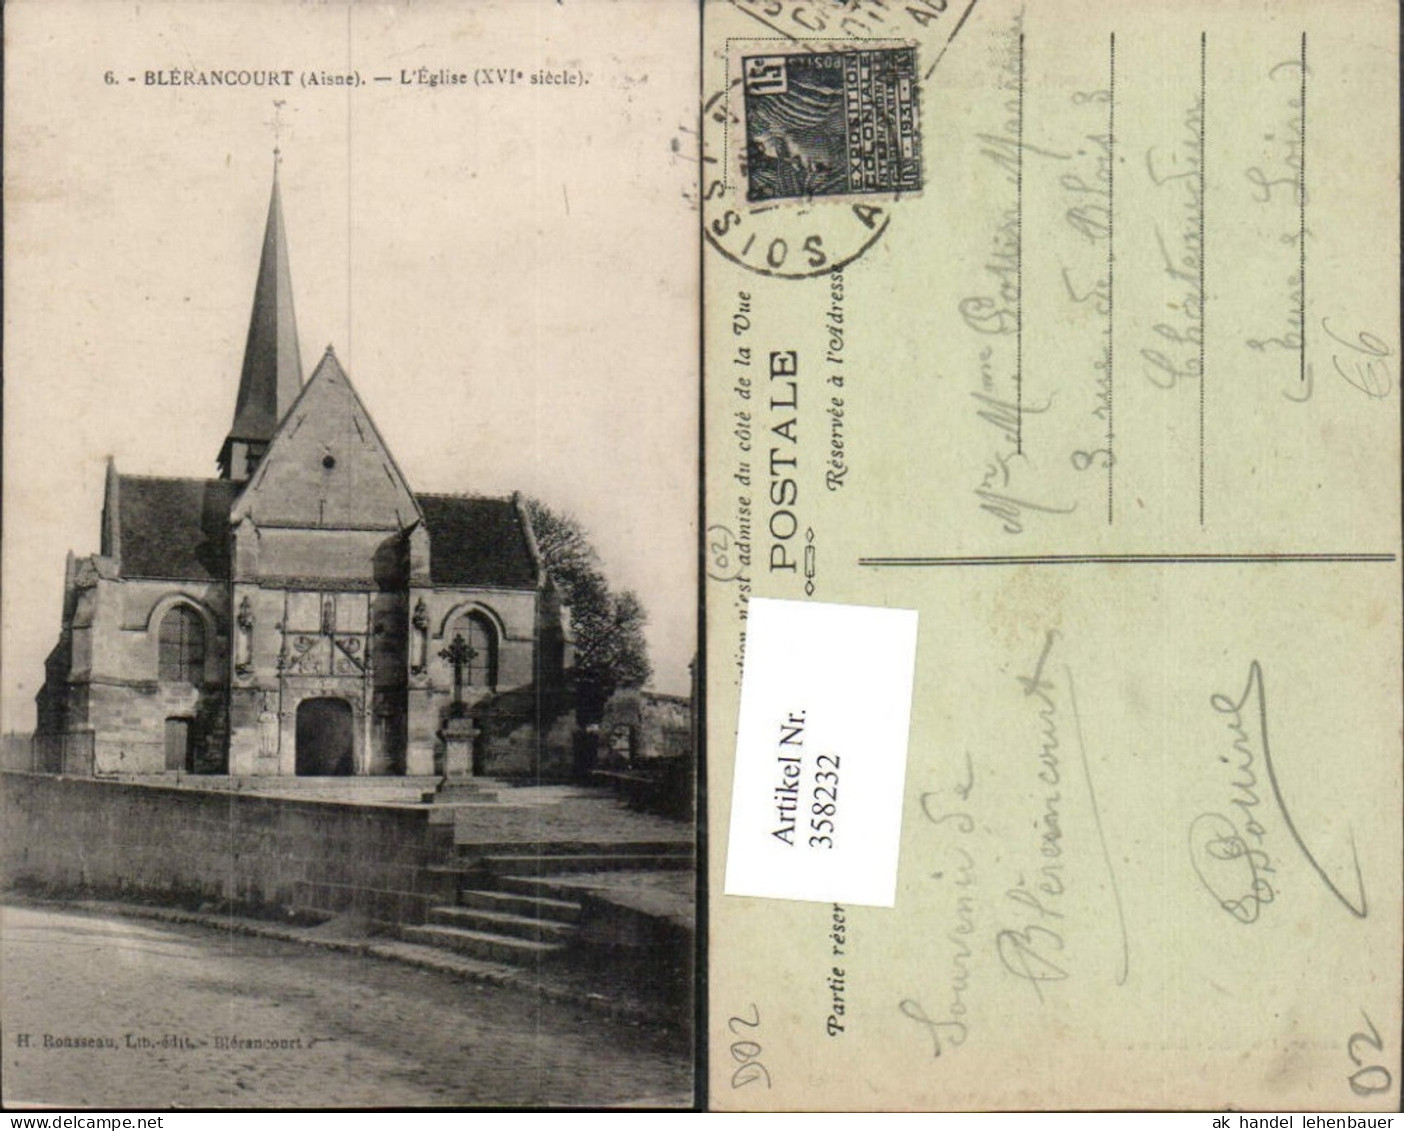 6. - BLÉRANCOURT (Aisne). — L'Église (XVIᵉ siècle).
H. Rousseau, Lib.-édit. - Blérancourt
15c
POSTES
EXPOSITION
COLONIALE
INTERNATIONALE
PARIS 1931
SOISSONS
A
n'est admise du côté de la Vue
POSTALE
Réservée à l'Adresse
Partie réser
(02)
Artikel Nr.
358232
Mr & Mme
3, rue de Blois 3
Châteaudun
(Eure & Loire)
66
Souvenir de
Blérancourt
D02
02
ak handel lehenbauer